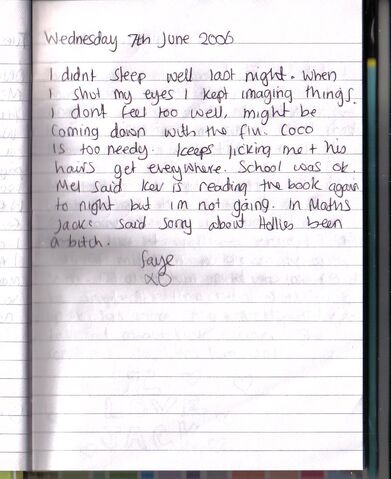 Wednesday 7th June 2006
I didnt sleep well last night. When
I shut my eyes I kept imaging things.
I dont feel too well, might be
coming down with the flu. Coco
is too needy. keeps licking me + his
hairs get everywhere. School was ok.
Mel said Kev is reading the book again
to night but im not going. In Maths
Jack said sorry about Hollies been
a bitch.
Faye
XO